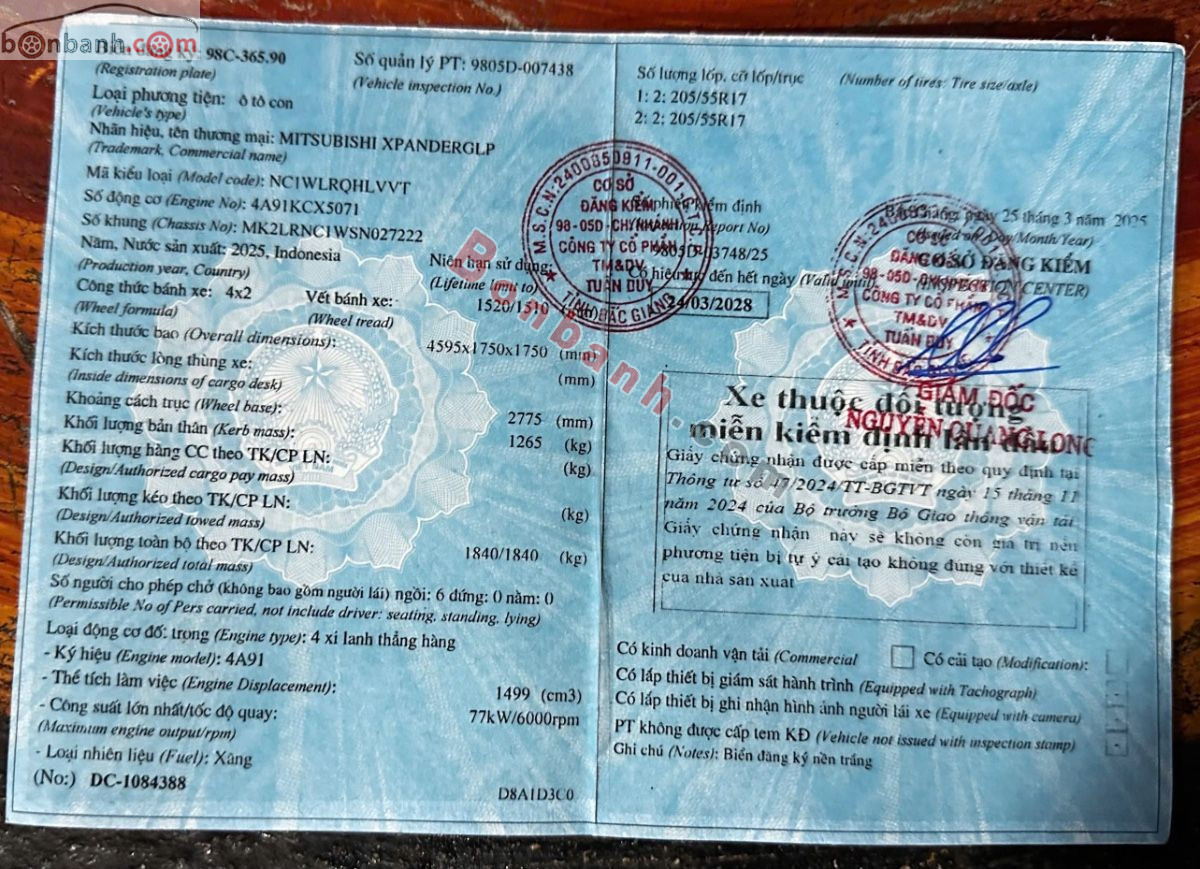 bonbanh.com
98C-365.90
(Registration plate)
Số quản lý PT: 9805D-007438
(Vehicle inspection No.)
Loại phương tiện: ô tô con
(Vehicle's type)
Nhãn hiệu, tên thương mại: MITSUBISHI XPANDERGLP
(Trademark, Commercial name)
Mã kiểu loại (Model code): NC1WLRQHLVVT
Số động cơ (Engine No): 4A91KCX5071
Số khung (Chassis No): MK2LRNC1WSN027222
Năm, Nước sản xuất: 2025, Indonesia
(Production year, Country)
Niên hạn sử dụng:
(Lifetime limit to)
Công thức bánh xe: 4x2
(Wheel formula)
Vết bánh xe: 1520/1510
(Wheel tread)
Kích thước bao (Overall dimensions): 4595x1750x1750 (mm)
Kích thước lòng thùng xe: (mm)
(Inside dimensions of cargo desk)
Khoảng cách trục (Wheel base): 2775 (mm)
Khối lượng bản thân (Kerb mass): 1265 (kg)
Khối lượng hàng CC theo TK/CP LN: (kg)
(Design/Authorized cargo pay mass)
Khối lượng kéo theo TK/CP LN: (kg)
(Design/Authorized towed mass)
Khối lượng toàn bộ theo TK/CP LN: 1840/1840 (kg)
(Design/Authorized total mass)
Số người cho phép chở (không bao gồm người lái) ngồi: 6 đứng: 0 nằm: 0
(Permissible No of Pers carried, not include driver: seating, standing, lying)
Loại động cơ đốt trong (Engine type): 4 xi lanh thẳng hàng
- Ký hiệu (Engine model): 4A91
- Thể tích làm việc (Engine Displacement): 1499 (cm3)
- Công suất lớn nhất/tốc độ quay: 77kW/6000rpm
(Maximum engine output/rpm)
- Loại nhiên liệu (Fuel): Xăng
(No:) DC-1084388
D8A1D3C0
VIỆT NAM
Số lượng lốp, cỡ lốp/trục (Number of tires: Tire size/axle)
1: 2: 205/55R17
2: 2: 205/55R17
phiếu kiểm định
Report No)
9805D-13748/25
Có hiệu lực đến hết ngày (Valid until)
24/03/2028
M.S.C.N:2400850911-001-C.T
CƠ SỞ
ĐĂNG KIỂM
98-05D-CHI NHÁNH
CÔNG TY CỔ PHẦN
TM&DV
TUẤN DUY
TỈNH BẮC GIANG
ngày 25 tháng 3 năm 2025
(Issued on Day/Month/Year)
CƠ SỞ ĐĂNG KIỂM
(INSPECTION CENTER)
CÔNG TY CỔ PHẦN
TM&DV
TUẤN DUY
GIÁM ĐỐC
NGUYỄN QUANG LONG
Xe thuộc đối tượng
miễn kiểm định lần đầu
Giấy chứng nhận được cấp miễn theo quy định tại
Thông tư số 47/2024/TT-BGTVT ngày 15 tháng 11
năm 2024 của Bộ trưởng Bộ Giao thông vận tải.
Giấy chứng nhận này sẽ không còn giá trị nếu
phương tiện bị tự ý cải tạo không đúng với thiết kế
của nhà sản xuất
Có kinh doanh vận tải (Commercial Có cải tạo (Modification):
Có lắp thiết bị giám sát hành trình (Equipped with Tachograph)
Có lắp thiết bị ghi nhận hình ảnh người lái xe (Equipped with camera)
PT không được cấp tem KĐ (Vehicle not issued with inspection stamp)
Ghi chú (Notes): Biển đăng ký nền trắng
Bonbanh.com